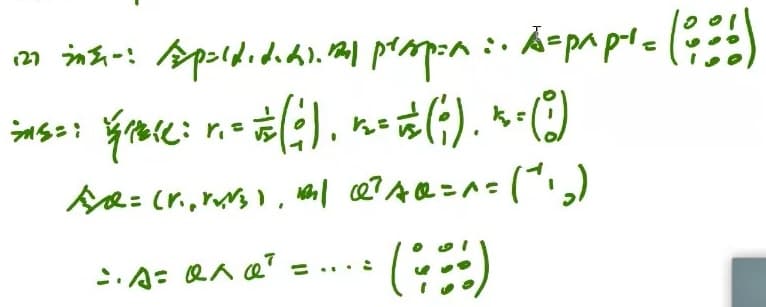 (2) 方法一: 令P=(α₁,α₂,α₃). 则 P⁻¹AP=Λ ∴ A=PΛP⁻¹ = (0 0 1; 0 0 0; 1 0 0)
方法二: 单位化: r₁=1/√2(1; 0; -1), r₂=1/√2(1; 0; 1), r₃=(0; 1; 0)
令Q=(r₁,r₂,r₃), 则 QᵀAQ=Λ=(-1 1 0)
∴ A= QΛQᵀ = ⋯ = (0 0 1; 0 0 0; 1 0 0)